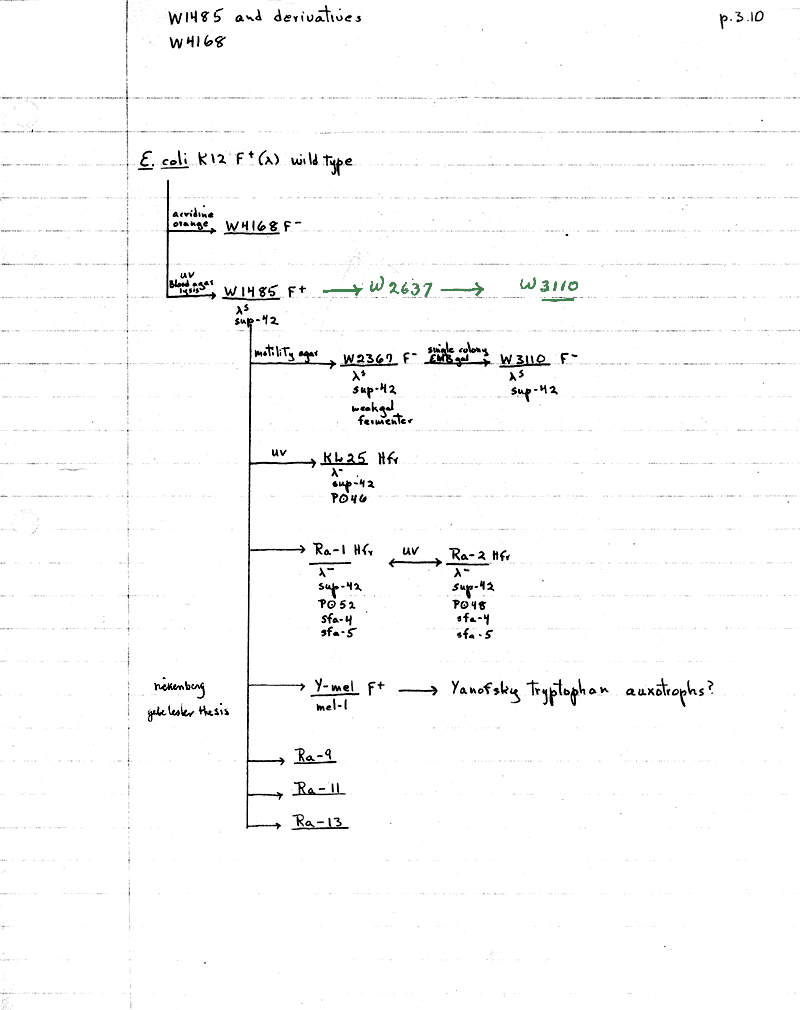 W1485 and derivatives
p.3.10
W4168
E. coli K12 F+(λ) wild type
acridine
orange
W4168 F-
UV
Blood agar
lysis
W1485 F+
W2637
W3110
λs
sup-42
motility agar
W2367 F-
single colony
EMB gal
W3110 F-
λs
λs
sup-42
sup-42
weak gal
fermenter
UV
KL25 Hfr
λ-
sup-42
PO46
Ra-1 Hfr
UV
Ra-2 Hfr
λ-
λ-
sup-42
sup-42
PO52
PO48
sfa-4
sfa-4
sfa-5
sfa-5
Y-mel F+
Yanofsky Tryptophan auxotrophs?
mel-1
lester thesis
Ra-9
Ra-11
Ra-13